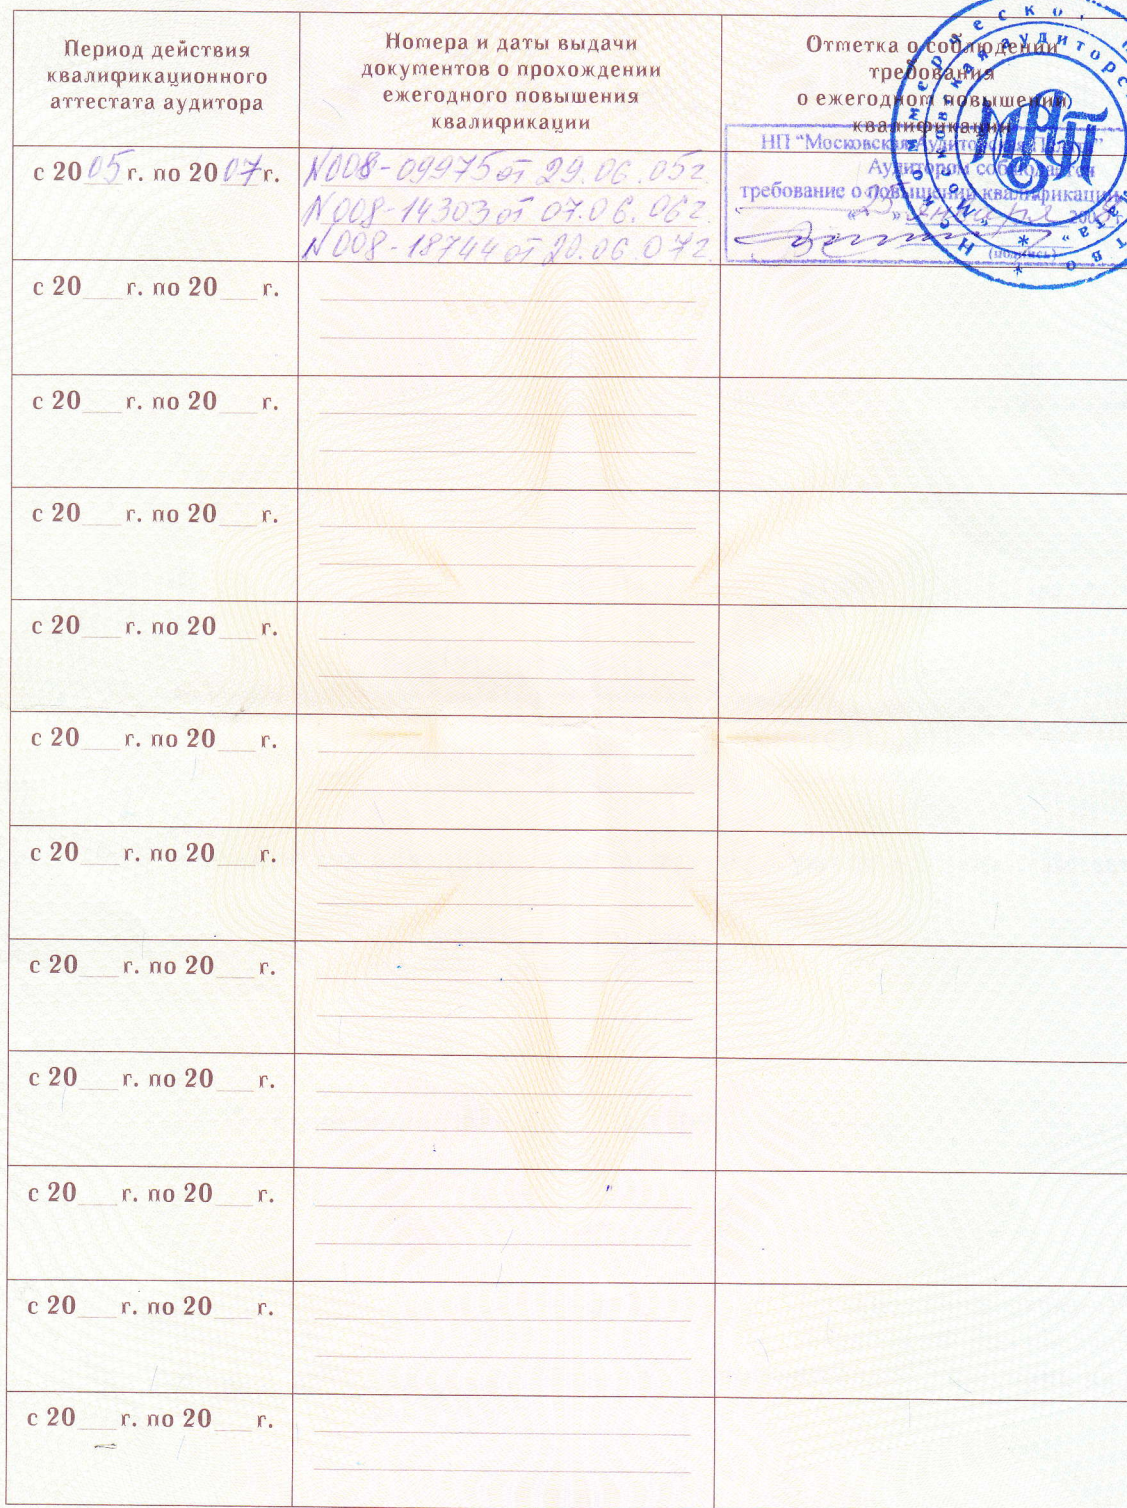 Период действия
квалификационного
аттестата аудитора
Номера и даты выдачи
документов о прохождении
ежегодного повышения
квалификации
Отметка о соблюдении
требования
о ежегодном повышении
квалификации
с 2005 г. по 2007 г.
N008-09975 от 29.06.05г.
N008-14303 от 07.06.06г.
N008-18744 от 20.06.07г.
НП "Московская Аудиторская Палата"
Аудитором соблюдается
требование о повышении квалификации
января 200
(подпись)
Некоммерческо
"Московская аудиторс
МАП
с 20___г. по 20___г.
с 20___г. по 20___г.
с 20___г. по 20___г.
с 20___г. по 20___г.
с 20___г. по 20___г.
с 20___г. по 20___г.
с 20___г. по 20___г.
с 20___г. по 20___г.
с 20___г. по 20___г.
с 20___г. по 20___г.
с 20___г. по 20___г.